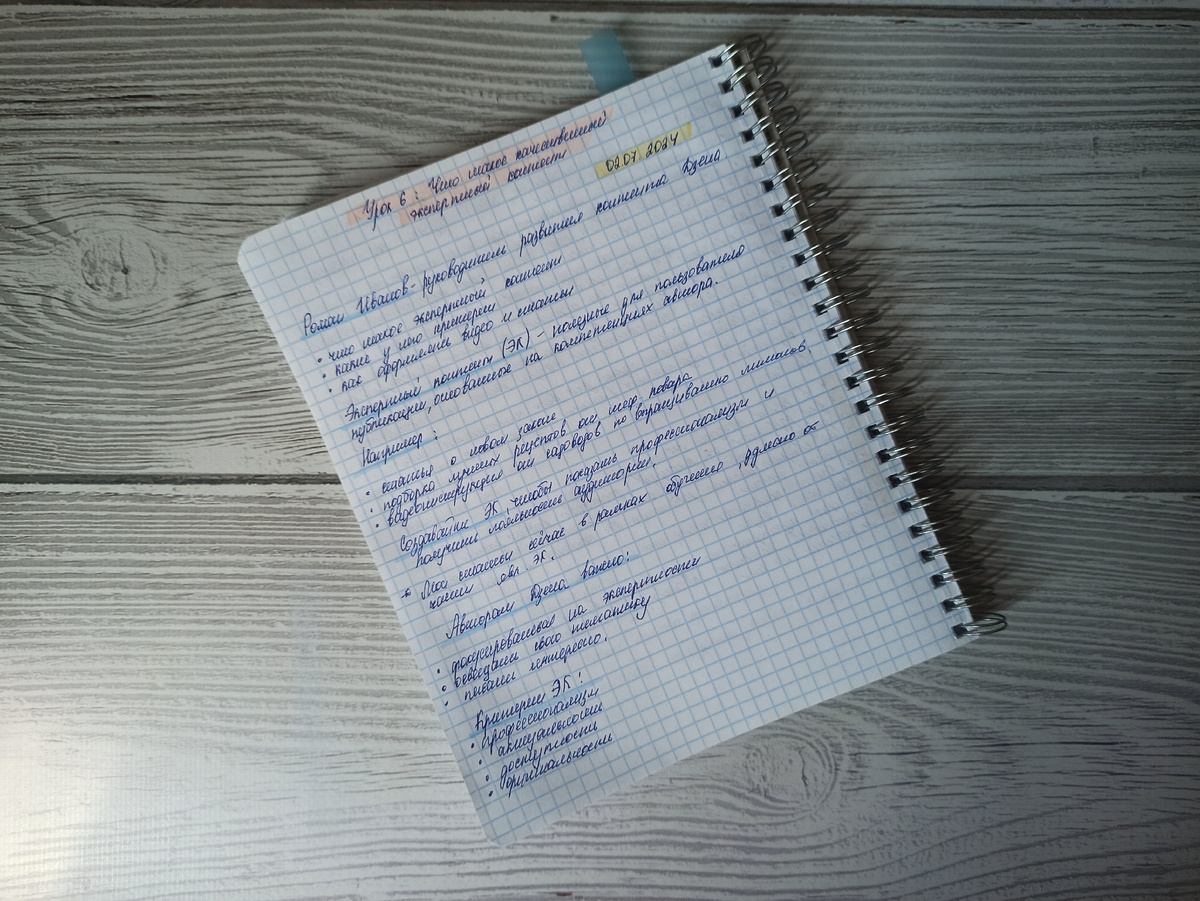 Урок 6: Что такое качественный
экспертный контент
02.07.2024
Роман Иванов - руководитель развития контента Дзена
• что такое экспертный контент
• какие у него критерии
• как оформлять видео и статьи
Экспертный контент (ЭК) - полезные для пользователя
публикации, основанные на компетенциях автора.
Например:
• статья о новом законе
• подборка лучших рецептов от шеф повара
• видеоинструкция от садоводов по выращиванию лимонов.
Создавайте ЭК, чтобы показать профессионализм и
получить лояльность аудитории.
Мои статьи сейчас в рамках обучению, думаю от
части явл. ЭК.
Авторам Дзена важно:
• фокусироваться на экспертности
• соблюдать свою тематику
• писать интересно.
Критерии ЭК:
• профессионализм
• актуальность
• доступность
• оригинальность